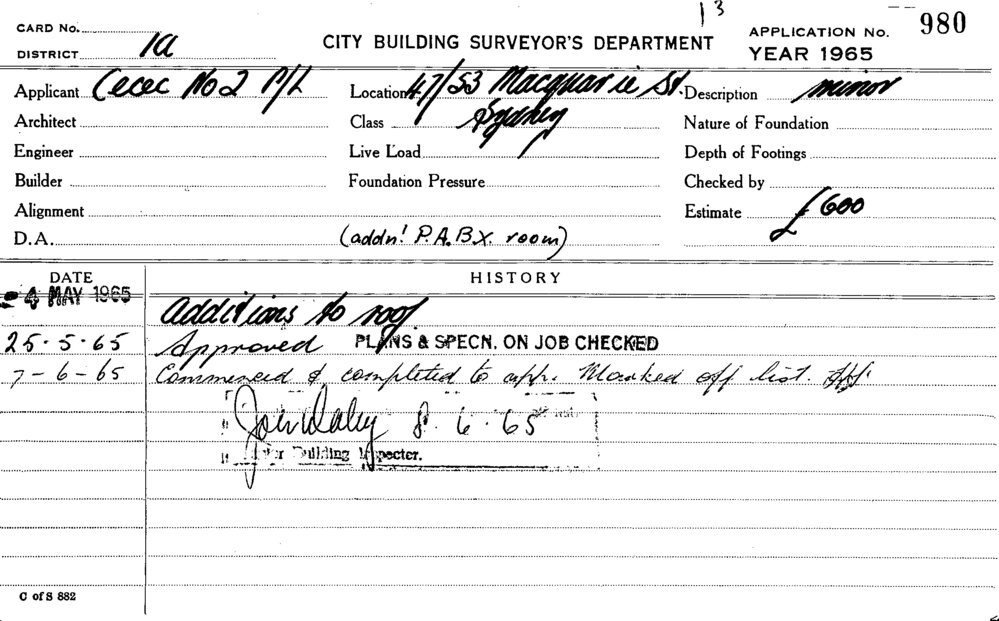 13
CARD No.
DISTRICT 1a
CITY BUILDING SURVEYOR'S DEPARTMENT
APPLICATION No. 980
YEAR 1965
Applicant Cecec No 2 P/L
Location 47/53 Macquarie St.
Description minor
Architect
Class Sydney
Nature of Foundation
Engineer
Live Load
Depth of Footings
Builder
Foundation Pressure
Checked by
Alignment
Estimate £600
D.A.
(addn! P.A.B.X. room)
DATE
HISTORY
4 MAY 1965
additions to roof
25.5.65 Approved PLANS & SPECN. ON JOB CHECKED
7-6-65 Commenced & completed to app. Marked off list.
John Daley 8.6.65
Building Inspecter.
C of S 882